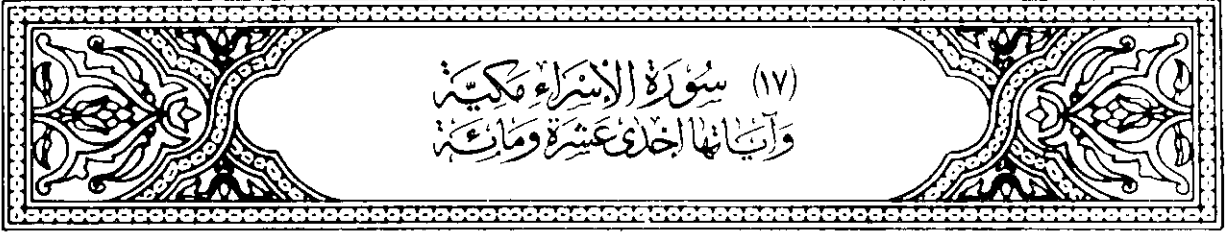 (١٧) سُورَة الإسْرَاءِ مَكيَّة
وَآيَاتُهَا إحْدَى عَشَرَة وَمائِة